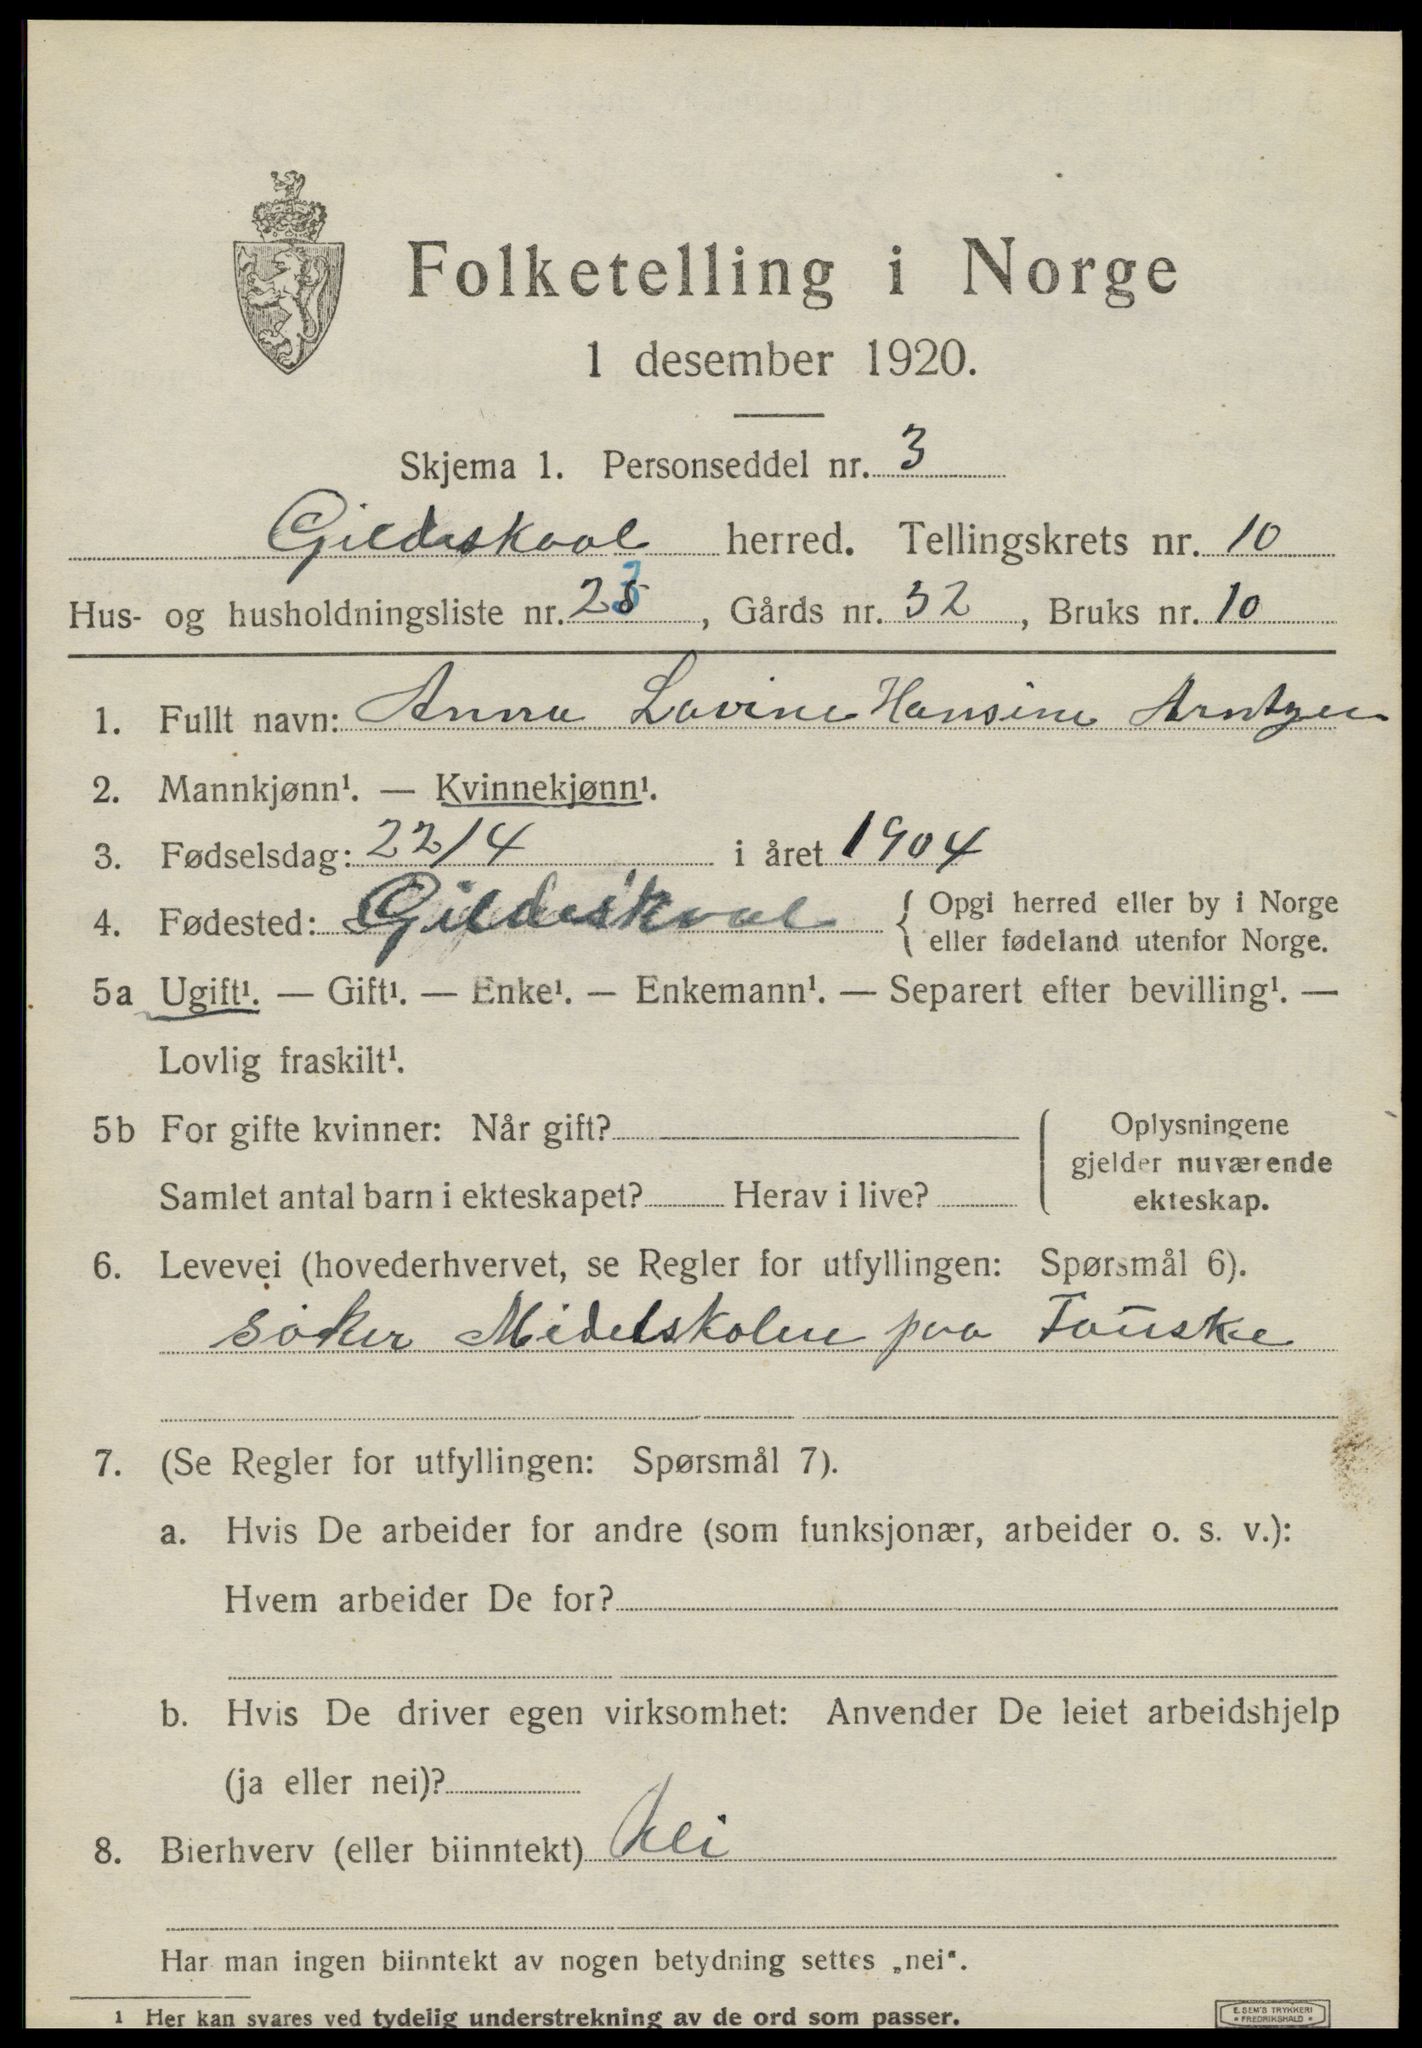 Folketelling i Norge
1 desember 1920.
Skjema 1. Personseddel nr. 3
Gildeskaal herred. Tellingskrets nr. 10
Hus- og husholdningsliste nr. 23, Gårds nr. 32, Bruks nr. 10
1. Fullt navn: Anna Lovine Hansine Arntzen
2. Mannkjønn¹. — Kvinnekjønn¹.
3. Fødselsdag: 22/4 i året 1904
4. Fødested: Gildeskaal { Opgi herred eller by i Norge
eller fødeland utenfor Norge.
5a Ugift¹. — Gift¹. — Enke¹. — Enkemann¹. — Separert efter bevilling¹. —
Lovlig fraskilt¹.
5b For gifte kvinner: Når gift?
Samlet antal barn i ekteskapet? Herav i live?
Oplysningene
gjelder nuværende
ekteskap.
6. Levevei (hovederhvervet, se Regler for utfyllingen: Spørsmål 6).
søker Midelskolen paa Fauske
7. (Se Regler for utfyllingen: Spørsmål 7).
a. Hvis De arbeider for andre (som funksjonær, arbeider o. s. v.):
Hvem arbeider De for?
b. Hvis De driver egen virksomhet: Anvender De leiet arbeidshjelp
(ja eller nei)?
8. Bierhverv (eller biinntekt) Nei
Har man ingen biinntekt av nogen betydning settes „nei“.
1 Her kan svares ved tydelig understrekning av de ord som passer.
E. SEM'S TRYKKERI
* FREDRIKSHALD *